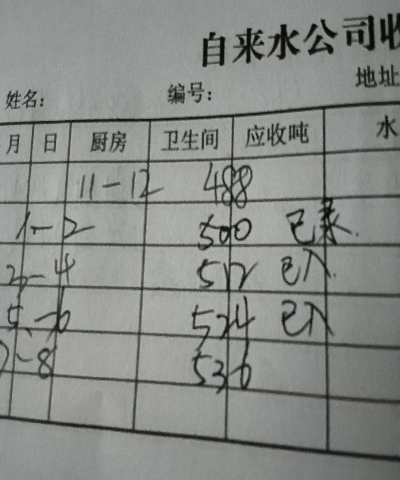 自来水公司收
地址
姓名: 编号:
月 日 厨房 卫生间 应收吨 水
11-12 488
1-2 500 已录
3-4 512 已入
5-6 524 已入
7-8 536